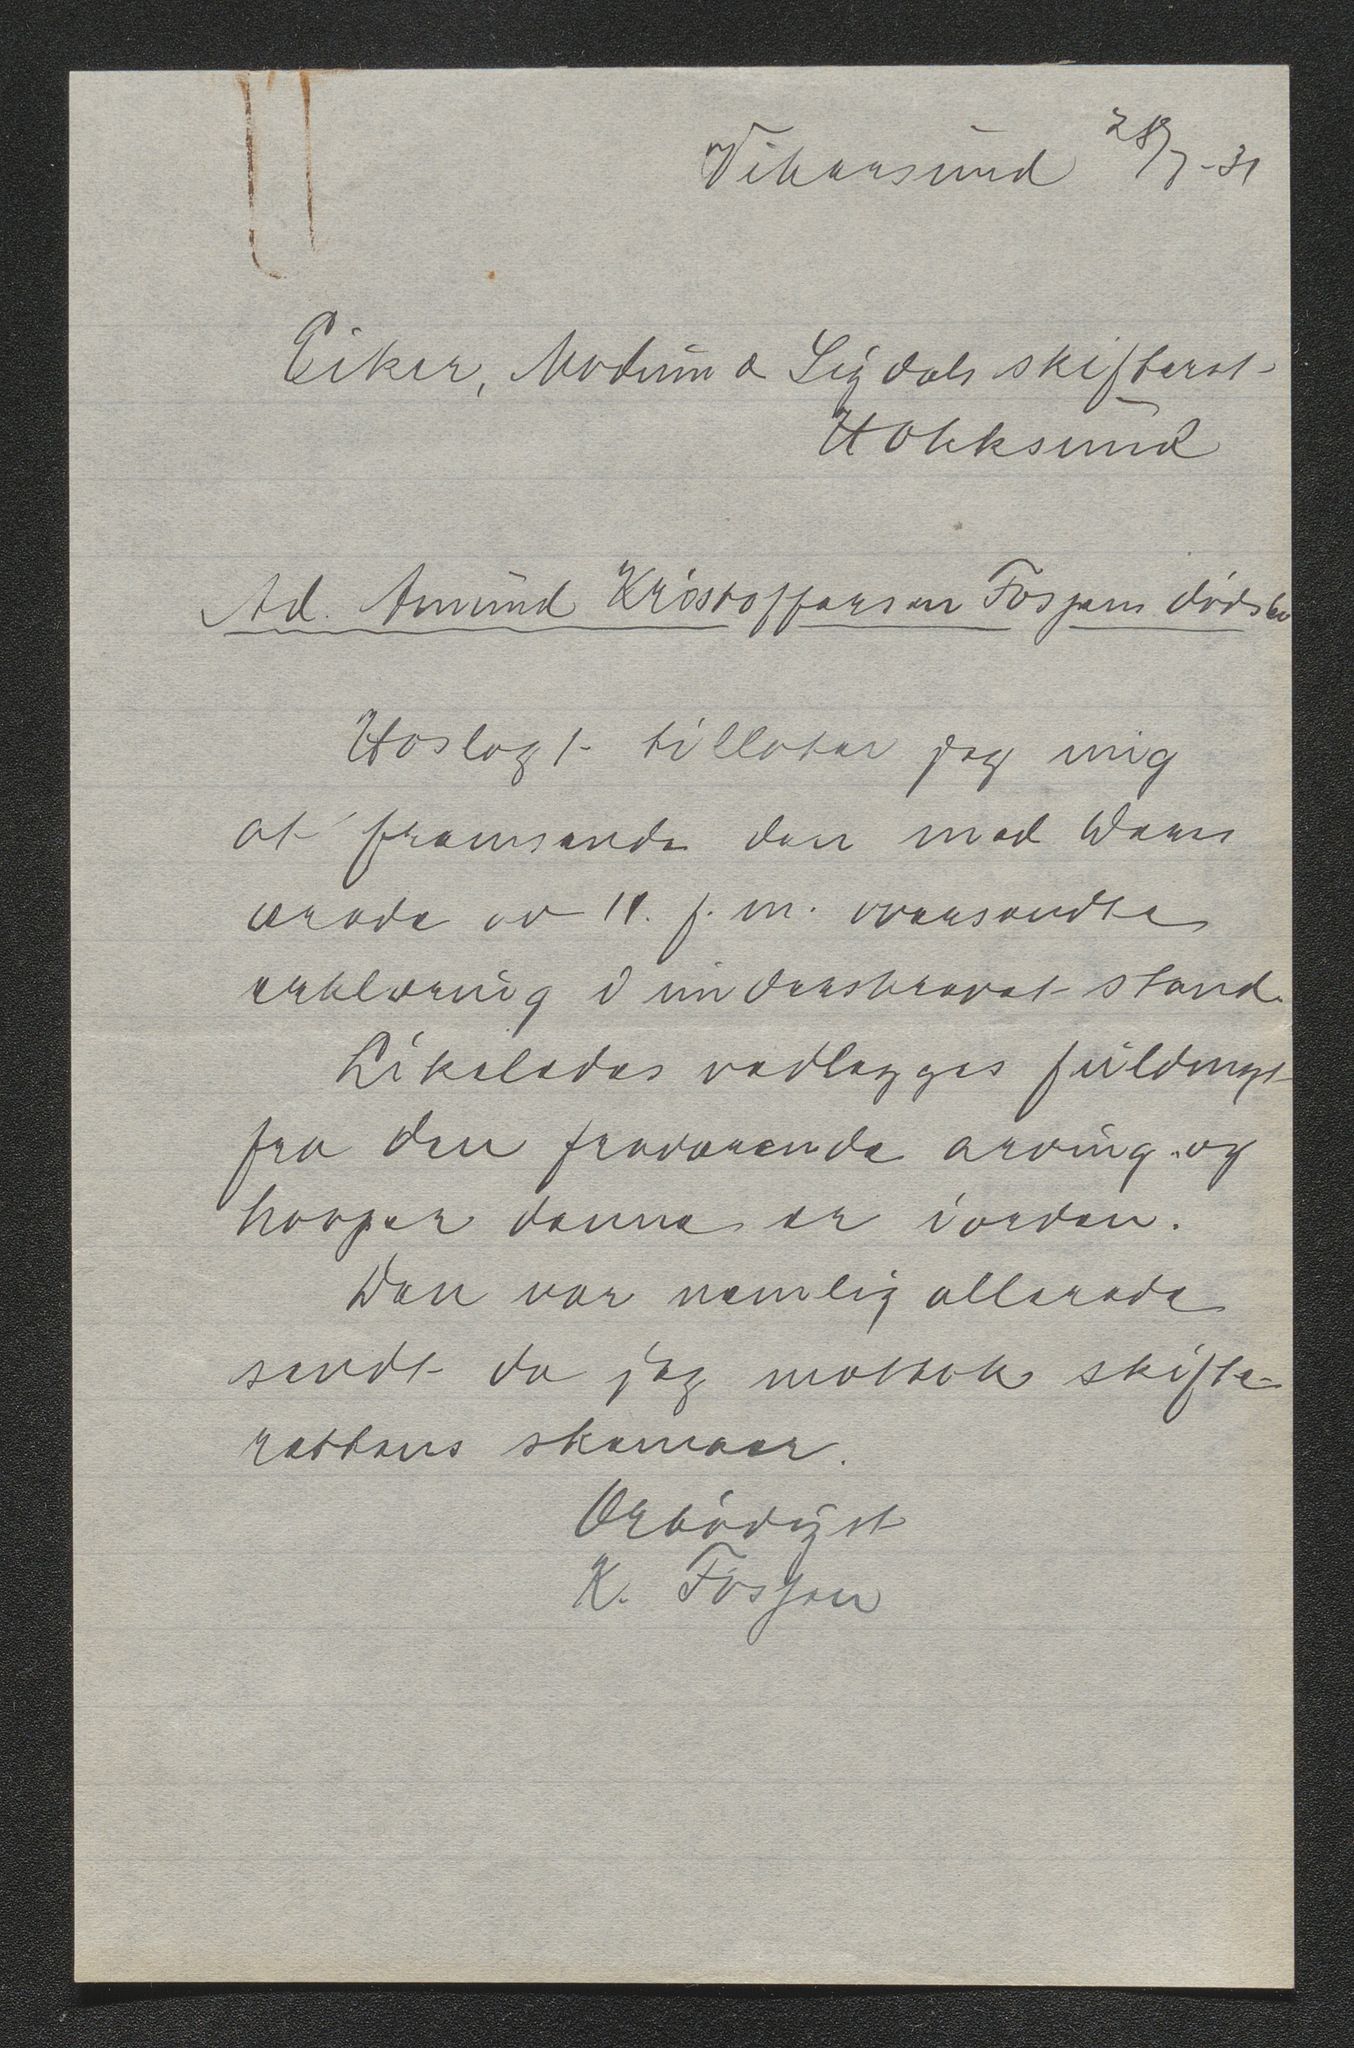 Vikersund 28/7-31
Eiker, Modum & Sigdals skifteret
Hokksund
Ad. Amund Kristoffersen Fosjens dødsbo
Hoslagt tillater jeg mig
at fremsende den med Deres
ærede av 11. f. m. oversendte
erklæring i underskrevet stand.
Likeledes vedlegges fuldmgt
fra den fraværende arving og
haaper denne er iorden.
Den var nemlig allerede
sendt da jeg mottok skifte-
rettens skemaer.
Ærbødigst
K. Fosjen